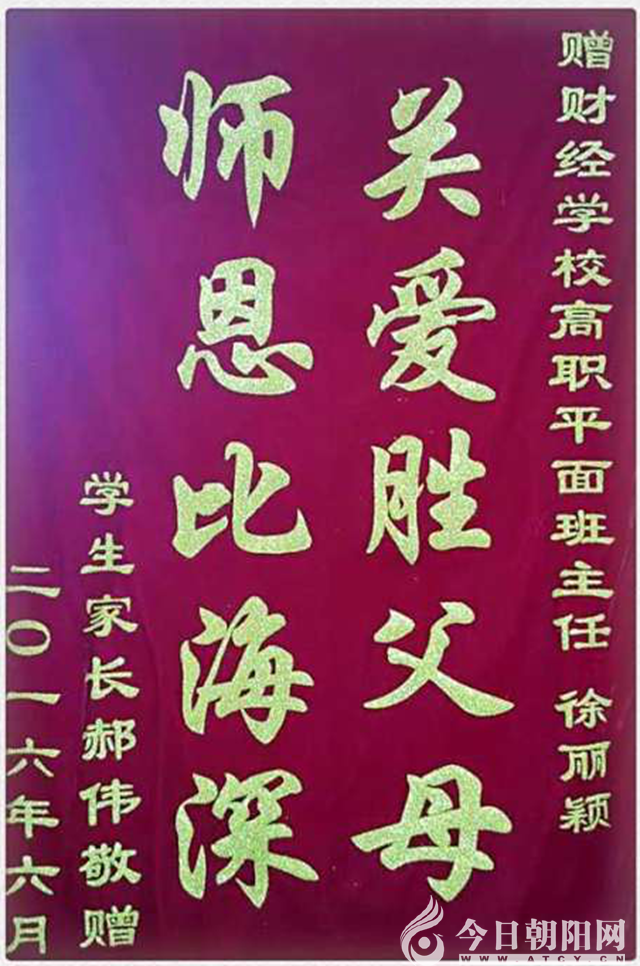 赠财经学校高职平面班主任 徐丽颖
关爱胜父母
师恩比海深
学生家长郝伟敬赠
二〇一六年六月
今日朝阳网
WWW.ATCY.CN